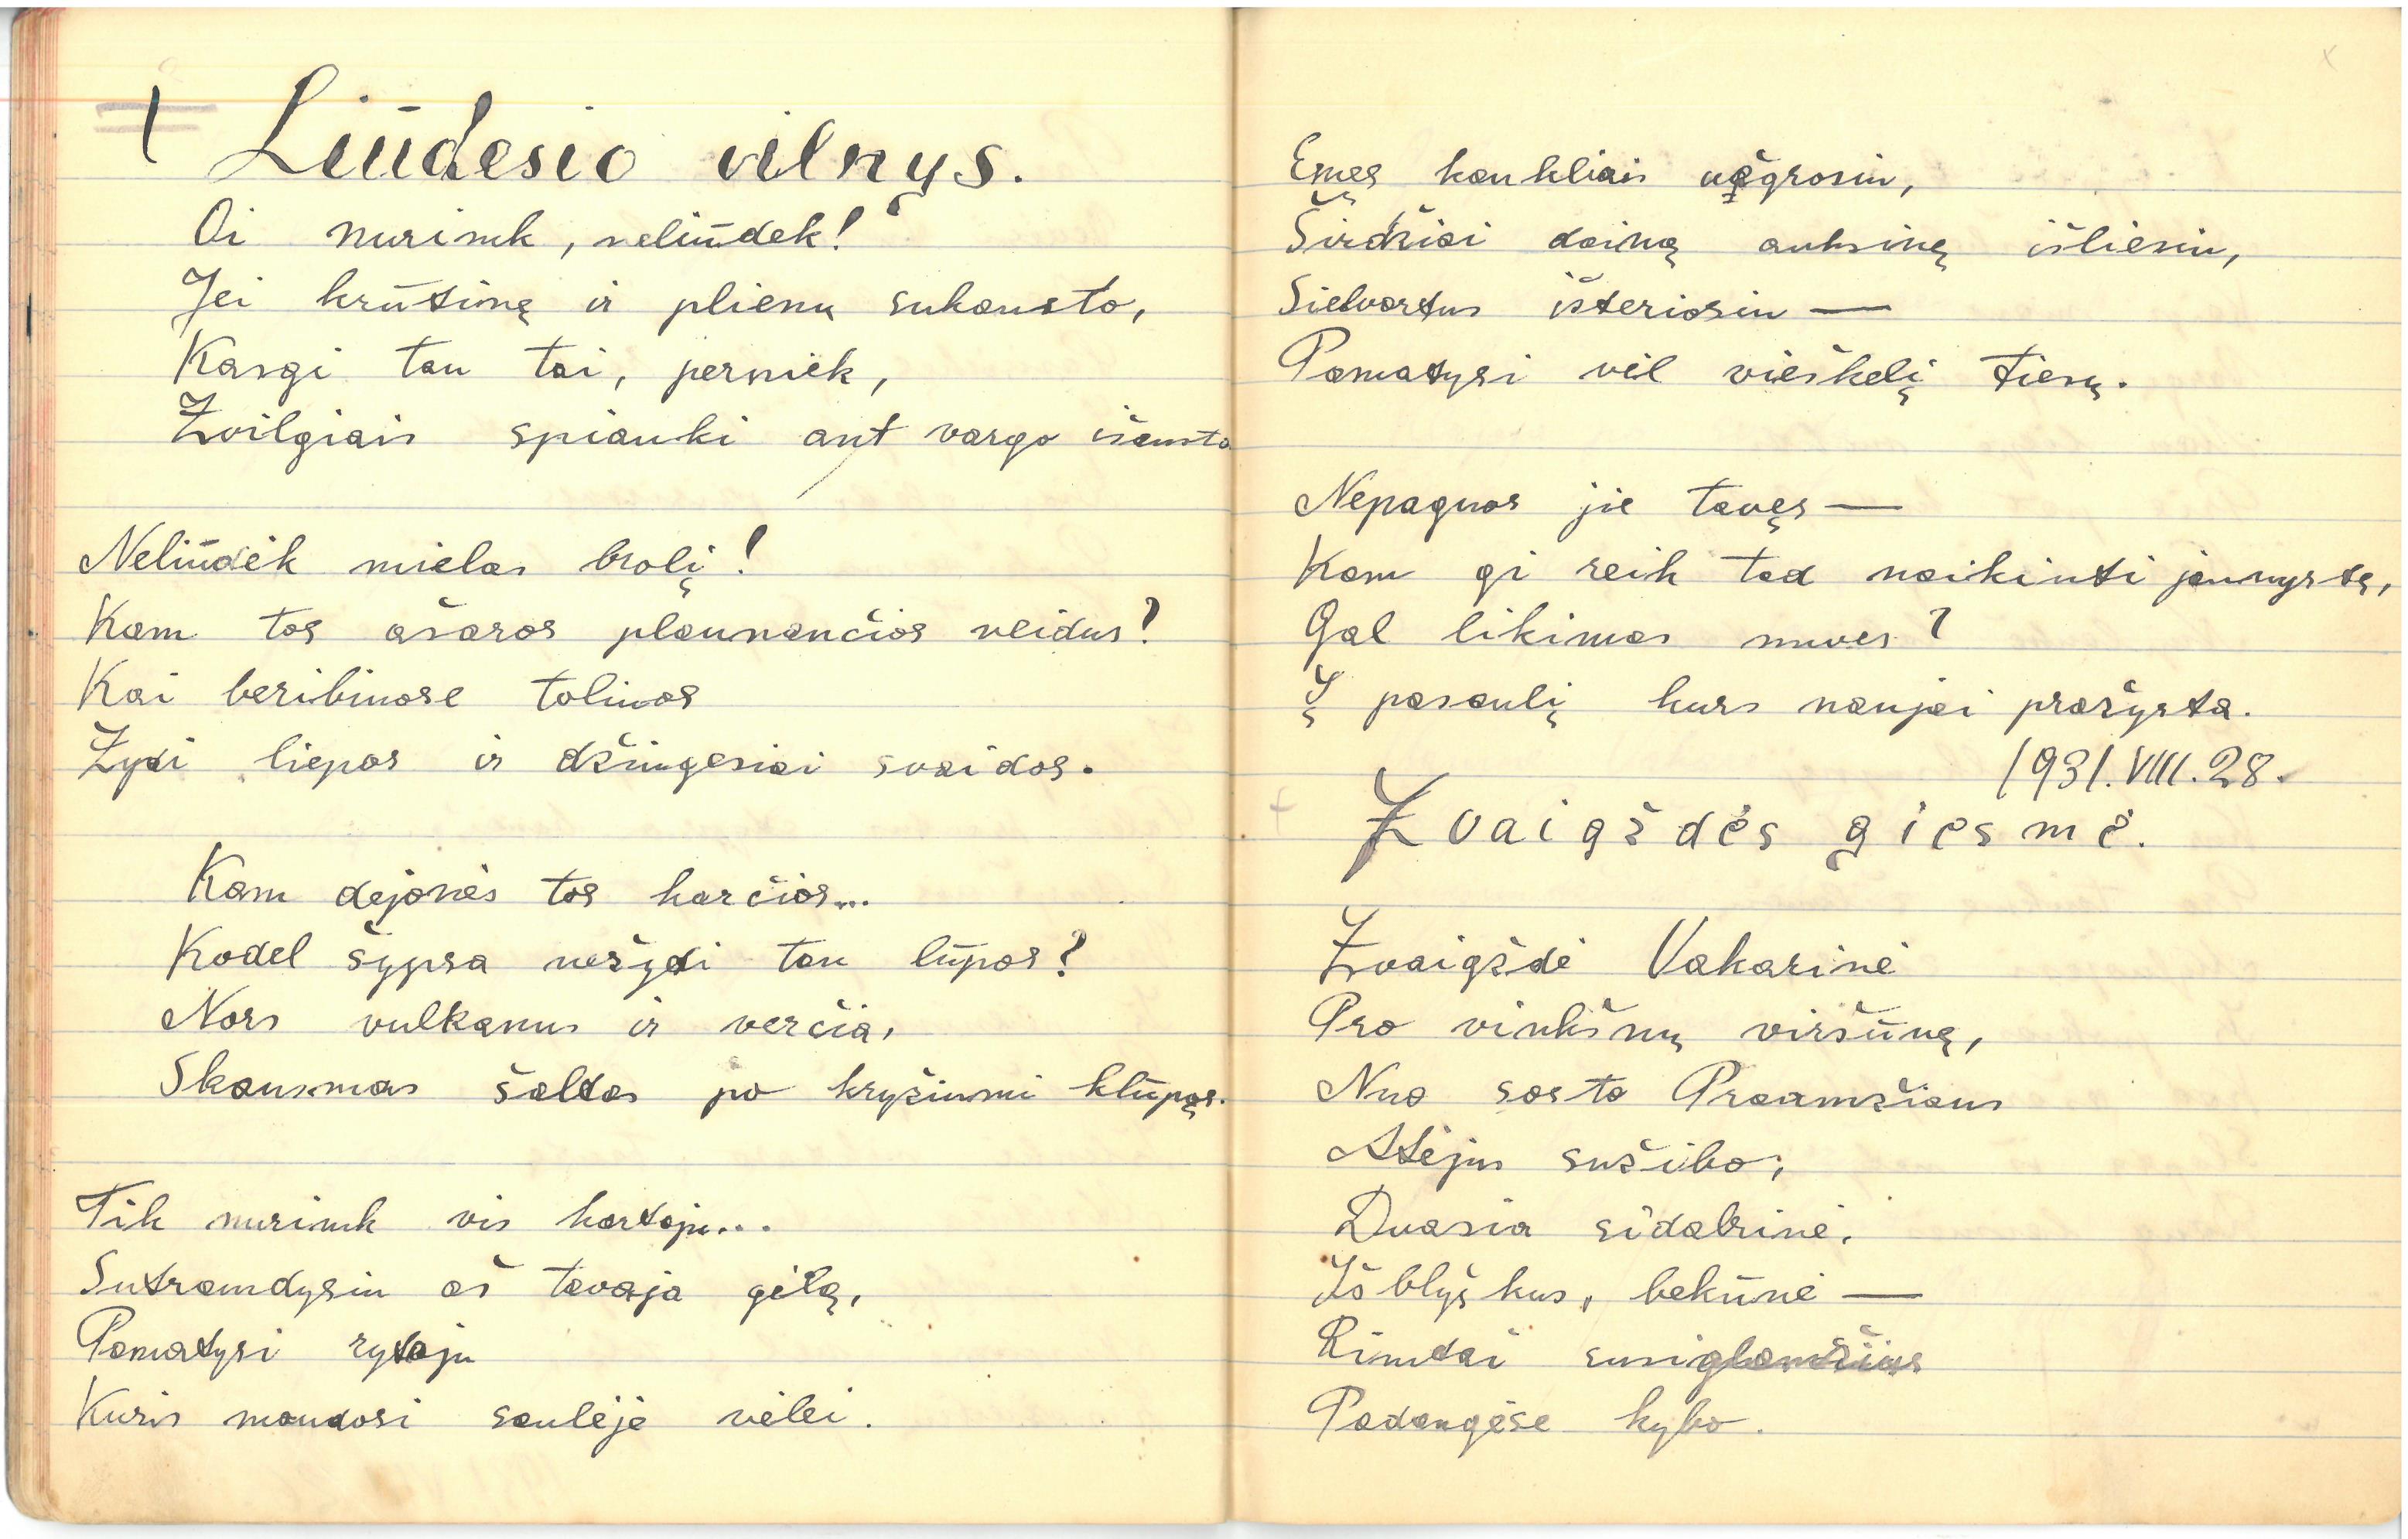 Liūdesio vilnys.
Oi nurimk, neliūdek!
Jei krūtinę ir plienu sukausto,
Kasgi tau tai, perniek,
Žvilgiais spiauki ant vargo išausto
Neliūdėk mielas brolį!
Kam tos ašaros plaunančios veidus?
Kai beribinose tolinos
Žydi liepos ir džiugesiai svaidos.
Kam dejonės tos karčios...
Kodel šypsa nežydi tau lūpos?
Nors vulkanus ir verčia,
Skausmas šaltas po kryžiumi klūpąs.
Tik nurimk vis kartoju...
Sutramdysiu aš tavaja gėlą,
Pamatysi rytoju
Kuris maudosi saulėje vėlei.
Emęs kankliais užgrosiu,
Širdžiai dainą auksinę išliesiu,
Sielvartus išteriosiu —
Pamatysi vėl vieškelį tiesų.
Nepaguos jie tavęs —
Kam gi reik tad naikinti jaunystę,
Gal likimas nuves?
Į pasaulį kurs naujai pražysta.
1931.VIII.28.
Žvaigždės giesmė.
Žvaigždė Vakarinė
Pro vinkšnų viršūnę,
Nuo sosto Praamžiaus
Atėjus sužibo;
Dvasia sidabrinė,
Išblyškus, bekūnė —
Rimtai susiglamžius
Padangėse kybo.